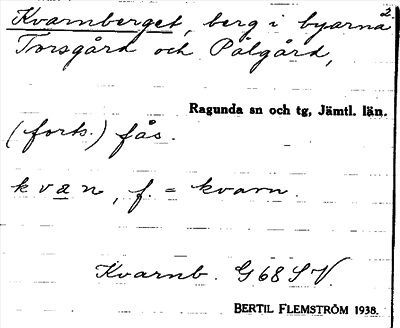 2.
Kvarnberget, berg i byarna
Torsgård och Pålgård,
Ragunda sn och tg, Jämtl. län.
(forts.) fås.
kvan, f. = kvarn.
Kvarnb. G68SV.
BERTIL FLEMSTRÖM 1938.